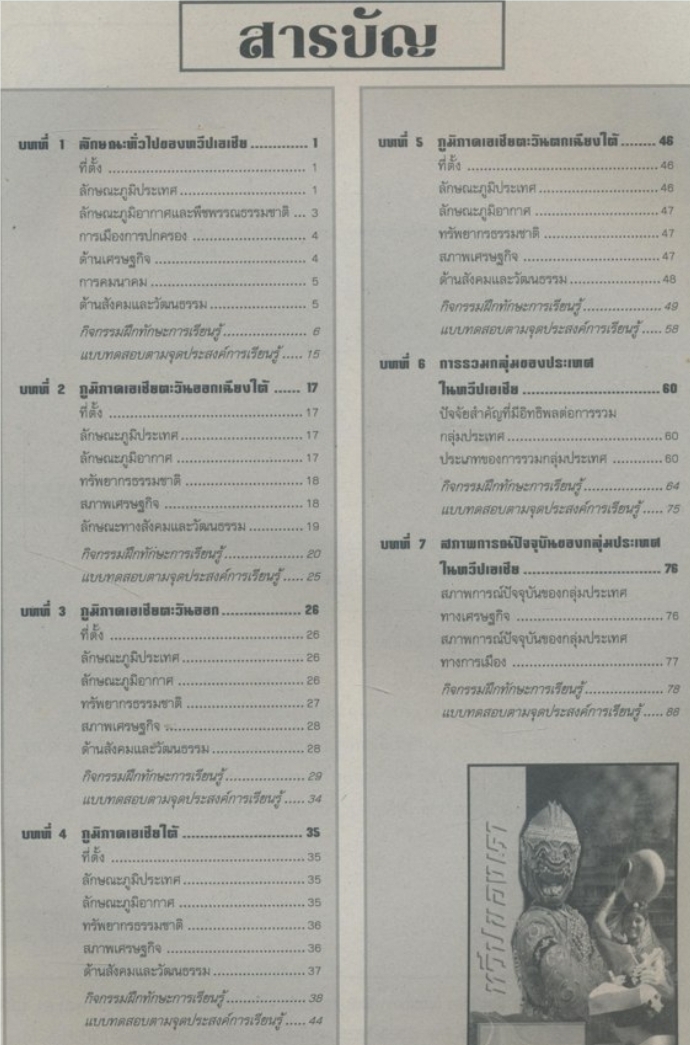 สารบัญ
บทที่ 1 ลักษณะทั่วไปของทวีปเอเชีย ............. 1
ที่ตั้ง ............. 1
ลักษณะภูมิประเทศ ............. 1
ลักษณะภูมิอากาศและพืชพรรณธรรมชาติ ... 3
การเมืองการปกครอง ............. 4
ด้านเศรษฐกิจ ............. 4
การคมนาคม ............. 5
ด้านสังคมและวัฒนธรรม ............. 5
กิจกรรมฝึกทักษะการเรียนรู้ ............. 6
แบบทดสอบตามจุดประสงค์การเรียนรู้ ..... 15
บทที่ 2 ภูมิภาคเอเชียตะวันออกเฉียงใต้ ...... 17
ที่ตั้ง ............. 17
ลักษณะภูมิประเทศ ............. 17
ลักษณะภูมิอากาศ ............. 17
ทรัพยากรธรรมชาติ ............. 18
สภาพเศรษฐกิจ ............. 18
ลักษณะทางสังคมและวัฒนธรรม ............. 19
กิจกรรมฝึกทักษะการเรียนรู้ ............. 20
แบบทดสอบตามจุดประสงค์การเรียนรู้ ..... 25
บทที่ 3 ภูมิภาคเอเชียตะวันออก ............. 26
ที่ตั้ง ............. 26
ลักษณะภูมิประเทศ ............. 26
ลักษณะภูมิอากาศ ............. 26
ทรัพยากรธรรมชาติ ............. 27
สภาพเศรษฐกิจ ............. 28
ด้านสังคมและวัฒนธรรม ............. 28
กิจกรรมฝึกทักษะการเรียนรู้ ............. 29
แบบทดสอบตามจุดประสงค์การเรียนรู้ ..... 34
บทที่ 4 ภูมิภาคเอเชียใต้ ............. 35
ที่ตั้ง ............. 35
ลักษณะภูมิประเทศ ............. 35
ลักษณะภูมิอากาศ ............. 35
ทรัพยากรธรรมชาติ ............. 36
สภาพเศรษฐกิจ ............. 36
ด้านสังคมและวัฒนธรรม ............. 37
กิจกรรมฝึกทักษะการเรียนรู้ ............. 38
แบบทดสอบตามจุดประสงค์การเรียนรู้ ..... 44
บทที่ 5 ภูมิภาคเอเชียตะวันตกเฉียงใต้ ........ 46
ที่ตั้ง ............. 46
ลักษณะภูมิประเทศ ............. 46
ลักษณะภูมิอากาศ ............. 47
ทรัพยากรธรรมชาติ ............. 47
สภาพเศรษฐกิจ ............. 47
ด้านสังคมและวัฒนธรรม ............. 48
กิจกรรมฝึกทักษะการเรียนรู้ ............. 49
แบบทดสอบตามจุดประสงค์การเรียนรู้ ..... 58
บทที่ 6 การรวมกลุ่มของประเทศ
ในทวีปเอเชีย ............. 60
ปัจจัยสำคัญที่มีอิทธิพลต่อการรวม
กลุ่มประเทศ ............. 60
ประเภทของการรวมกลุ่มประเทศ ............. 60
กิจกรรมฝึกทักษะการเรียนรู้ ............. 64
แบบทดสอบตามจุดประสงค์การเรียนรู้ ..... 75
บทที่ 7 สภาพการณ์ปัจจุบันของกลุ่มประเทศ
ในทวีปเอเชีย ............. 76
สภาพการณ์ปัจจุบันของกลุ่มประเทศ
ทางเศรษฐกิจ ............. 76
สภาพการณ์ปัจจุบันของกลุ่มประเทศ
ทางการเมือง ............. 77
กิจกรรมฝึกทักษะการเรียนรู้ ............. 78
แบบทดสอบตามจุดประสงค์การเรียนรู้ ..... 88
ทวีปของเรา